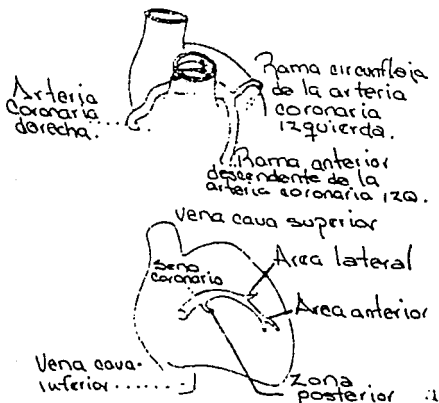 Arteria
coronaria
derecha.....
Rama circunfleja
de la arteria
coronaria
izquierda.
Rama anterior
descendente de la
arteria coronaria IZQ.
Vena cava superior
Seno
coronario
Area lateral
Area anterior
Vena cava
inferior......
Zona
posterior